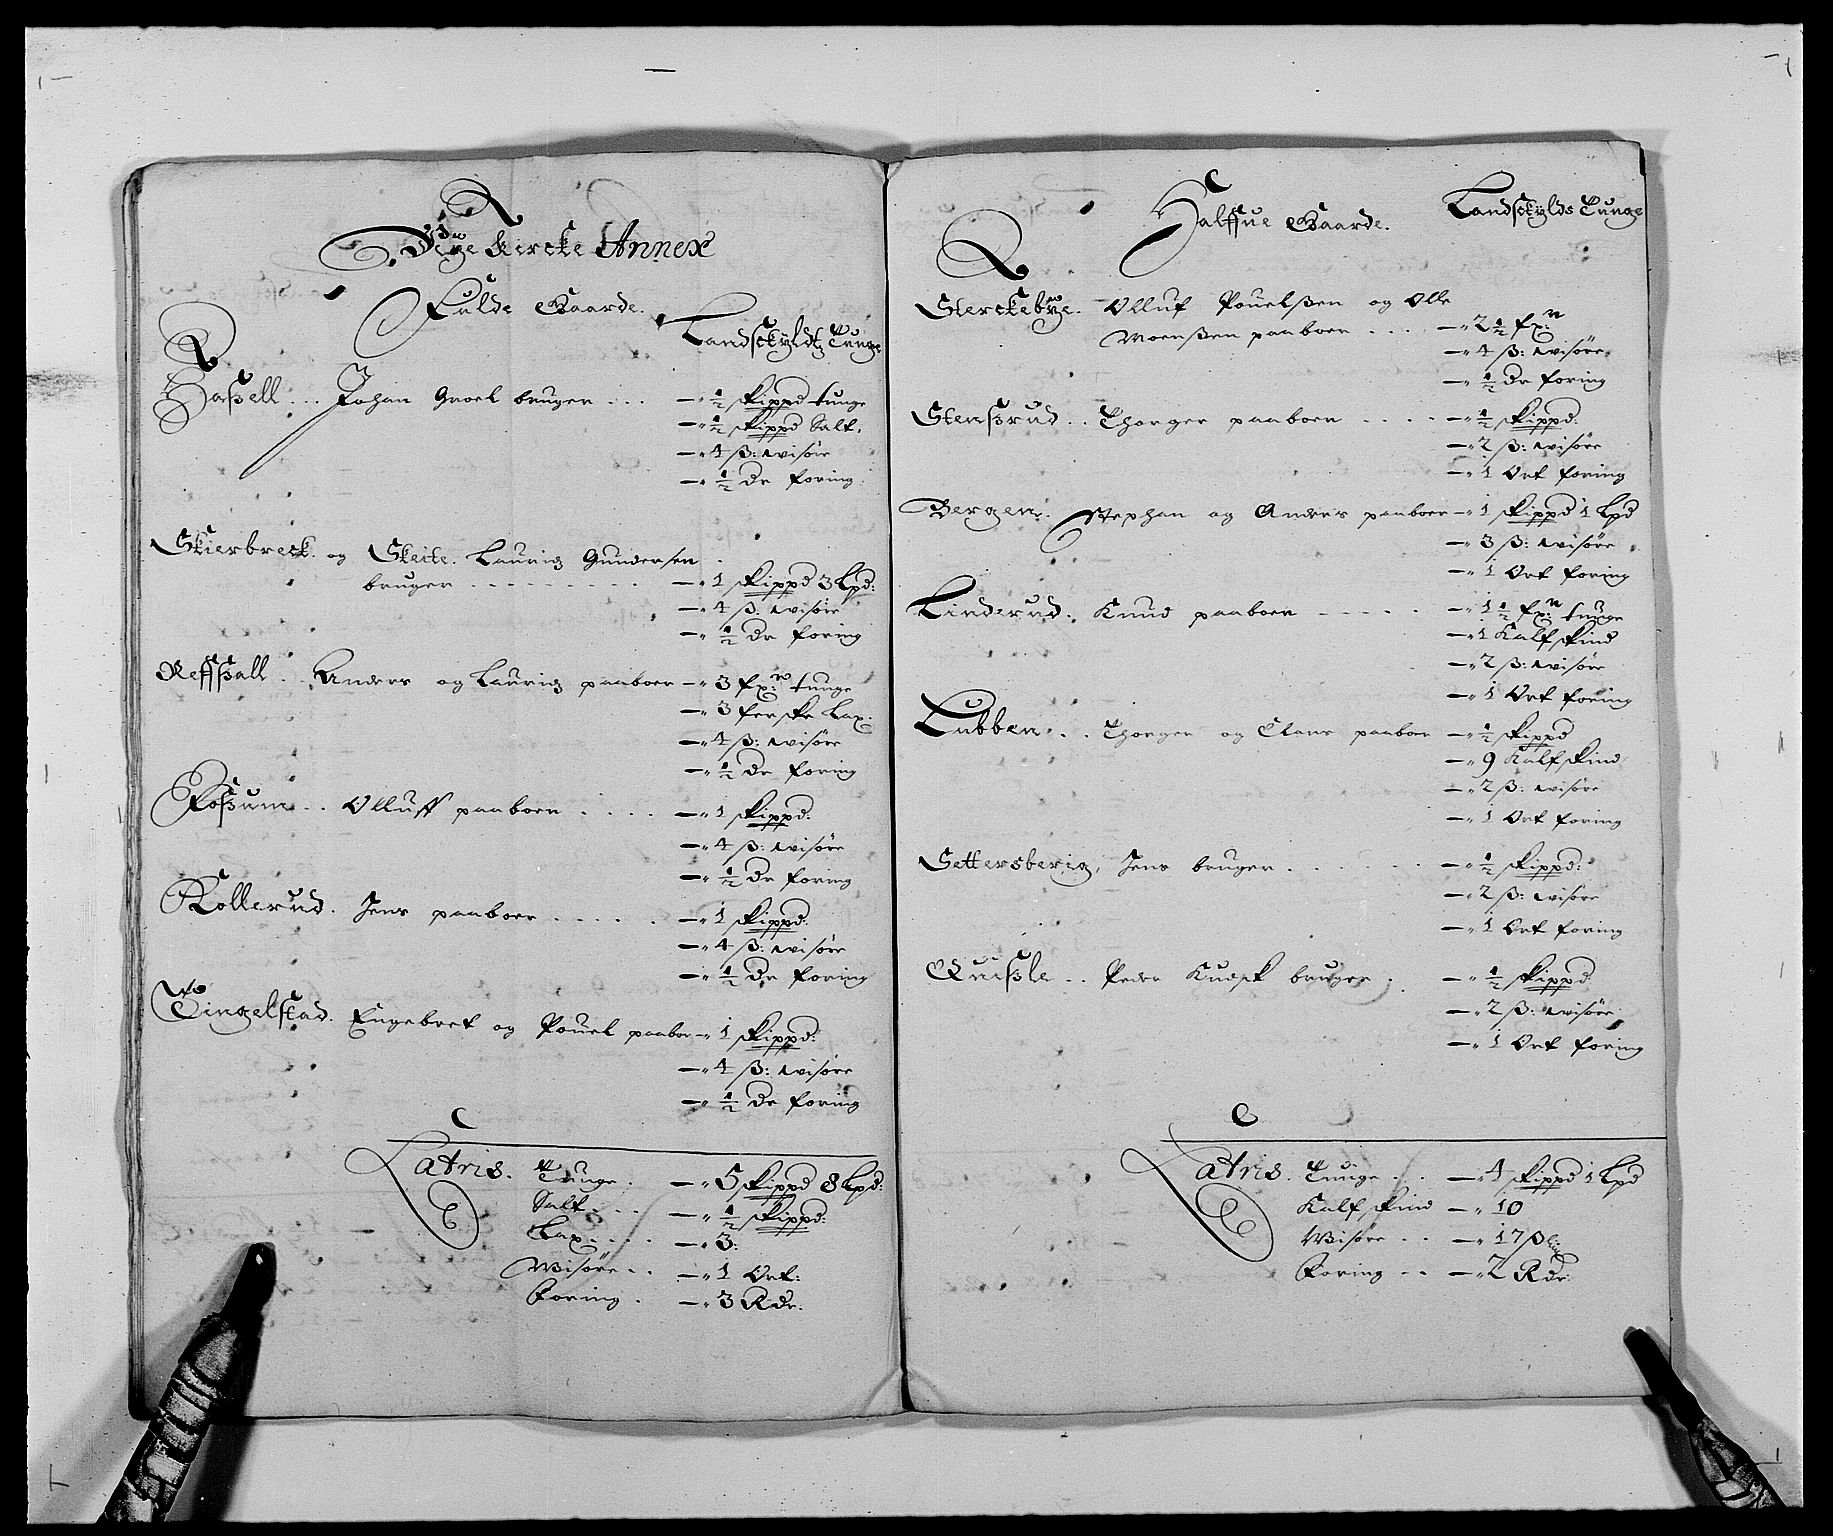 Vige Kircke Annex
Fulde Gaarde.
Landsckyldtz Tunge
Haßell... Johan Groel bruger... -" ½ skippd tunge
-" ½ skippd Salt.
-" 4 ß: wisöre
-" ½ dr foring
Skierbreck. og Skeite. Lauridz Gundersen
bruger - - - - - - - -" 1 skippd 3 Lpd:
-" 4 ß: wisöre
-" ½ dr foring
Reffßall. Anders og Lauridz paaboer -" 3 fx: tunge
-" 3 ferske Lax.
-" 4 ß: wisöre
-" ½ dr foring
Foßum.. Olluff paaboer..... -" 1 skippd:
-" 4 ß: wisöre
-" ½ dr foring
Kollerud. Jens paaboer..... -" 1 skippd:
-" 4 ß: wisöre
-" ½ dr foring
Tingelstad. Engebret og Pouel paaboer -" 1 skippd:
-" 4 ß: wisöre
-" ½ dr foring
Latris. Tunge. -" 5 skippd 8 Lpd:
Salt... -" ½ skippd:
Lax.... -" 3:
Wisöre.. -" 1 Ort:
Foring. -" 3 Rdr.
Halffue Gaarde. Landsckylds Tunge
Sterckebye. Olluf Pouelßen og Olle
Moenßen paaboer.... -" 2½ fx:
-" 4 ß: wisöre.
-" ½ dr foring
Stenßrud.. Thorger paaboer.... -" ½ skippd:
-" 2 ß: wisöre
-" 1 Ort foring
Bergen. Stephan og Anders paaboer -" 1 skippd 1 Lpd
-" 3 ß: wisöre.
-" 1 Ort foring
Linderud. Knud paaboer - - - - - -" 1½ fx: tunge
-" 1 Kalfskind
-" 2 ß: wisöre
-" 1 Ort foring
Lubben... Thorger og Claus paaboer -" ½ skippd
-" 9 Kalfskind
-" 2 ß: wisöre
-" 1 Ort foring
Settersberig, Jens bruger..... -" ½ skippd:
-" 2 ß: wisöre
-" 1 Ort foring
Quißle.. Peder Kudsk bruger. -" ½ skippd
-" 2 ß: wisöre
-" 1 Ort foring
Latris. Tunge... -" 4 skippd 1 Lpd
Kalfskind -" 10
Wisöre.. -" 17 ß
Foring.. -" 2 Rdr.